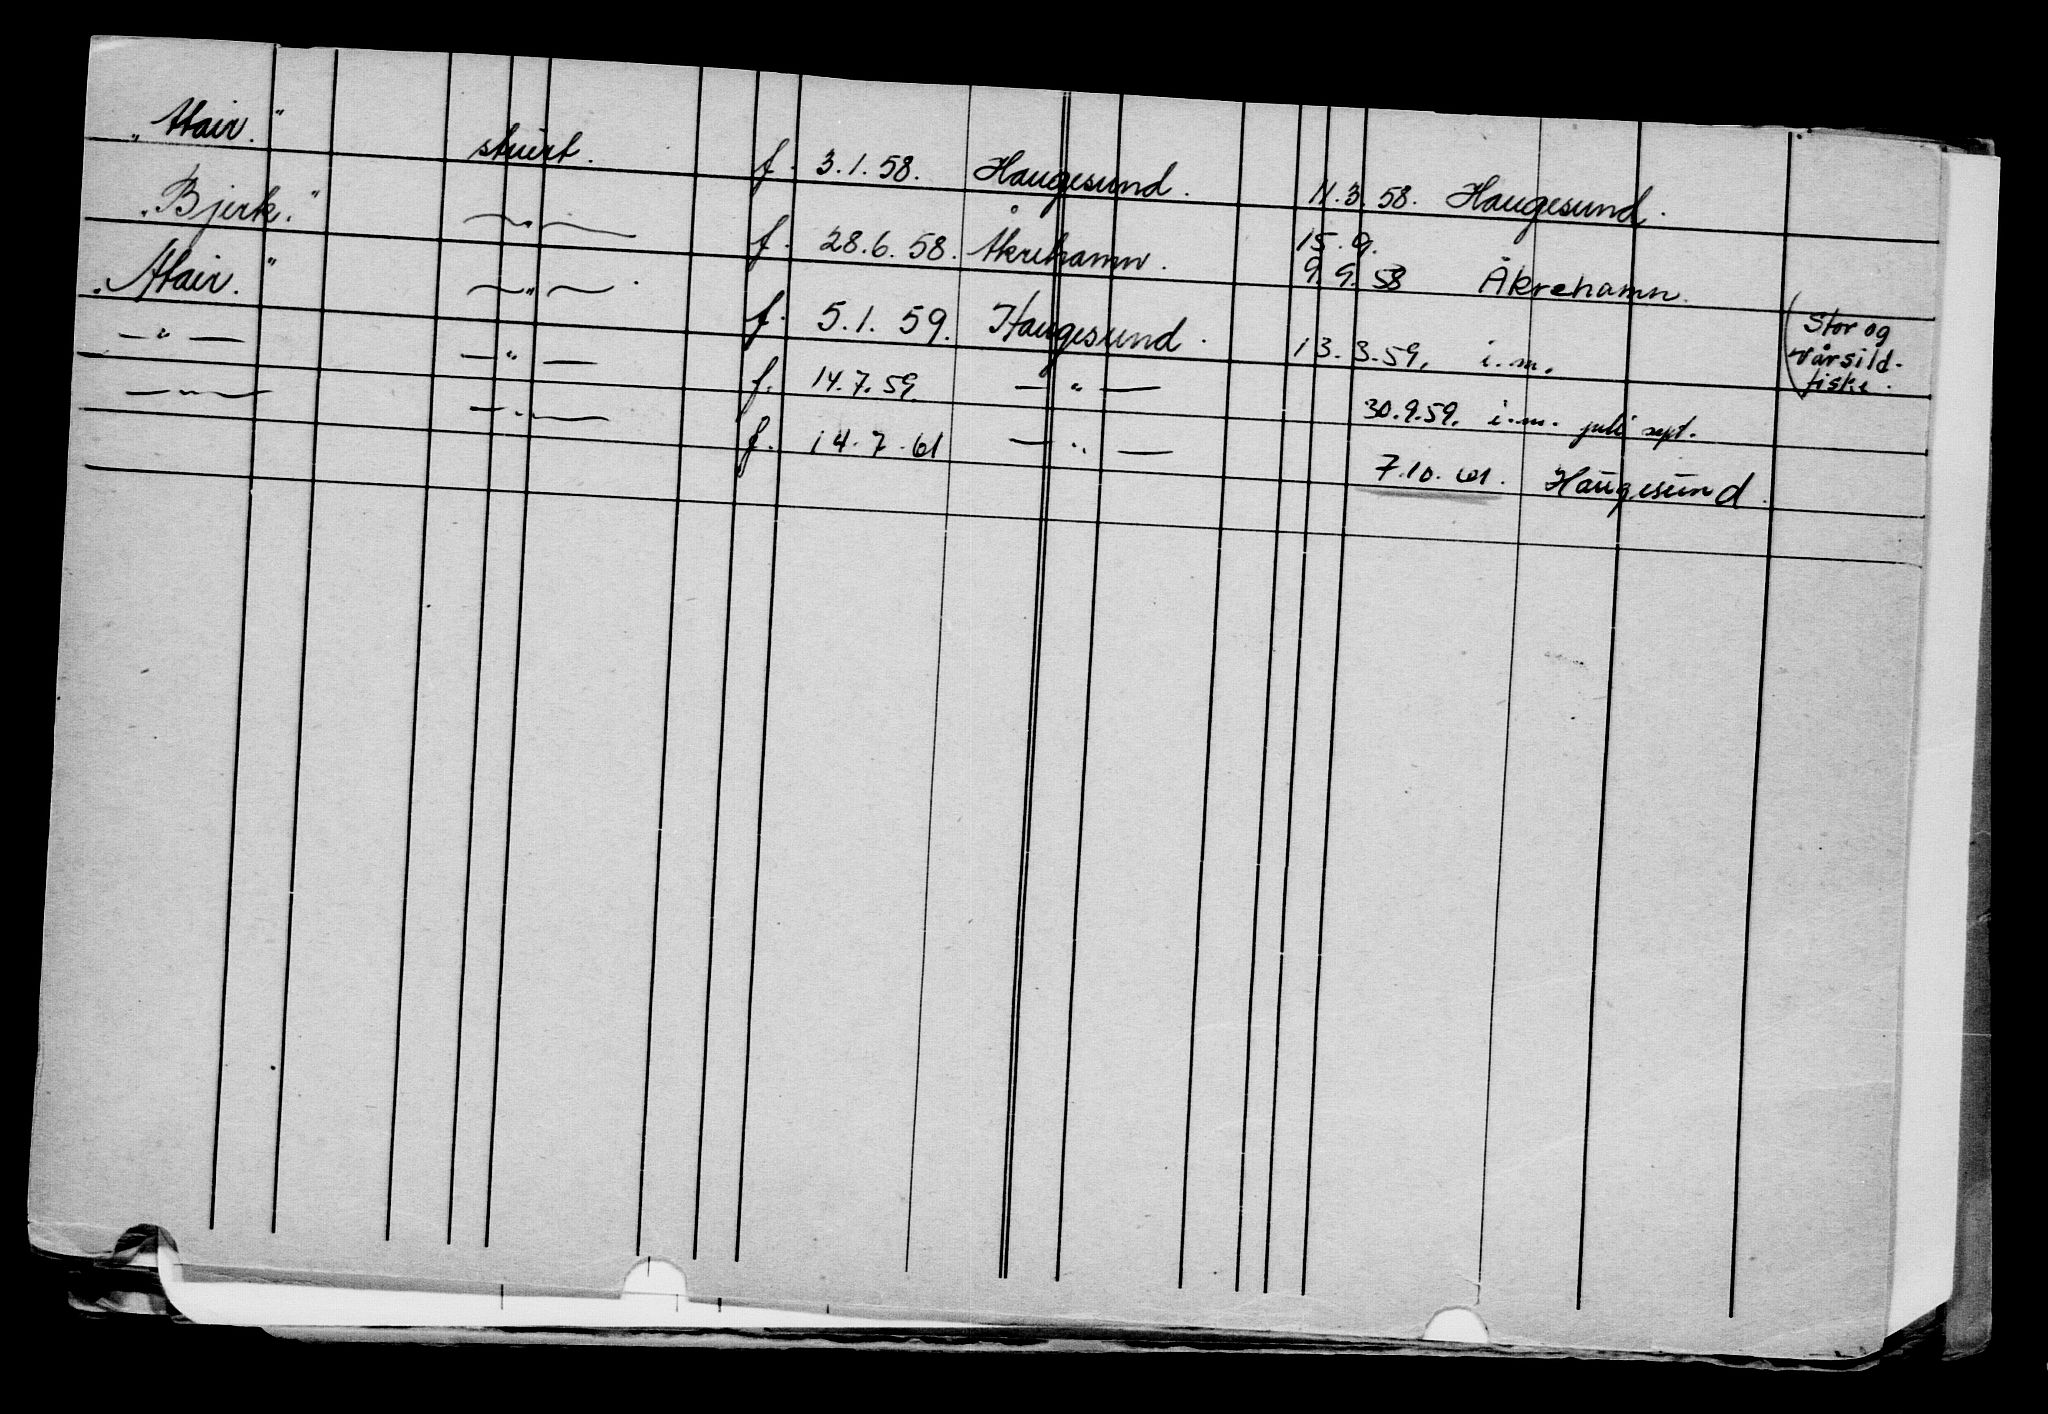 „Atair.“ stuert. f. 3.1.58. Haugesund. 11.3.58. Haugesund.
„Bjerk.“ —„— f. 28.6.58. Åkrehamn. 15.9.
9.9.58 Åkrehamn.
„Atair.“ —„— . f. 5.1.59. Haugesund. 13.3.59. i.m. (Stor og
vårsild-
fiske.
—„— —„— f. 14.7.59. —„— 30.9.59. i.m. juli sept.
—„— —„— f. 14.7.61 —„— 7.10.61. Haugesund.